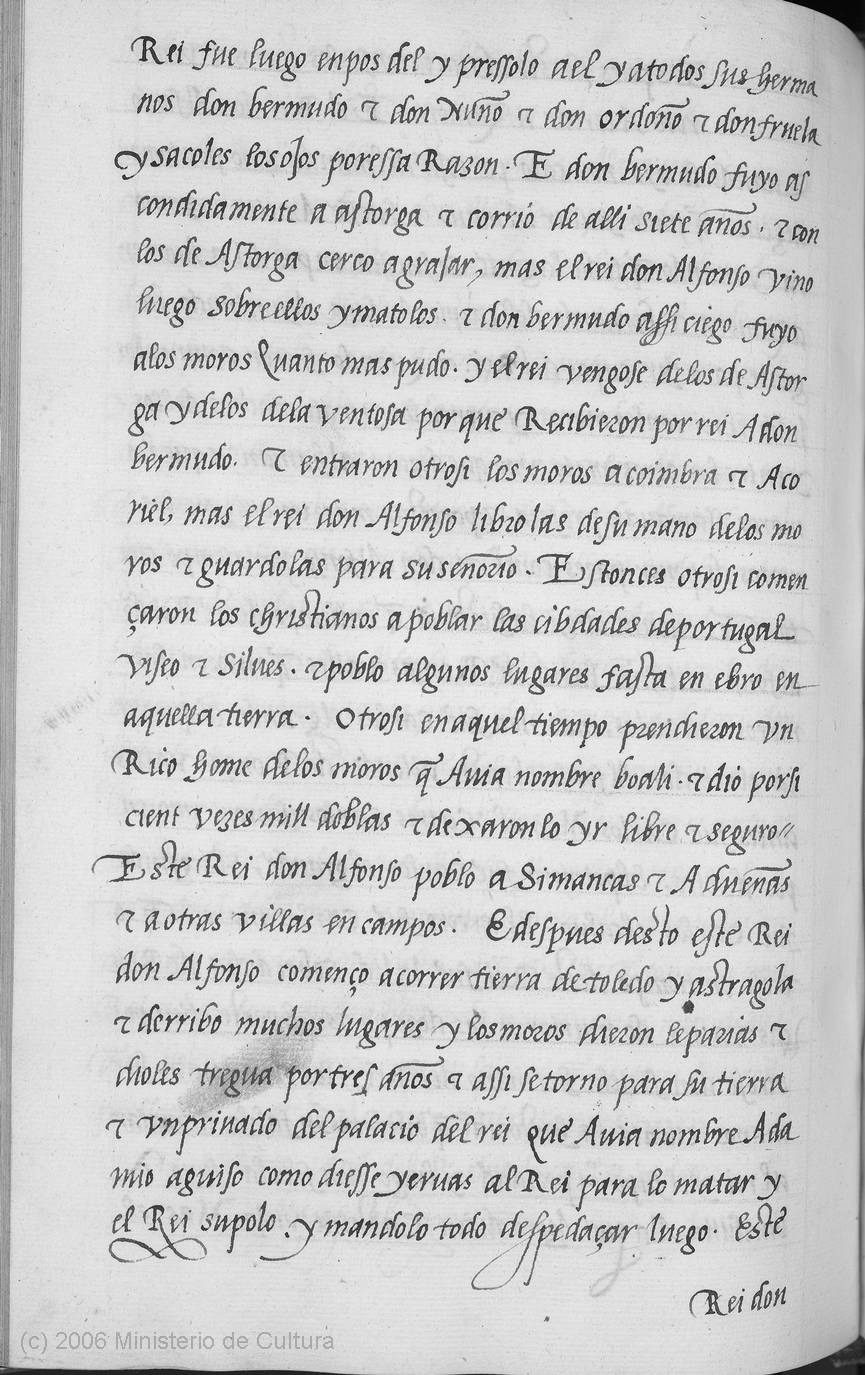 Rei fue luego enpos del y pressolo a el y a todos sus herma
nos don bermudo & don Nuño & don ordoño & don fruela
y sacoles los ojos por essa Razon. E don bermudo fuyo as
condidamente a astorga & corrio de alli siete años. & con
los de Astorga cerco a grajar, mas el rei don Alfonso vino
luego sobre ellos y matolos. & don bermudo assi ciego fuyo
a los moros Quanto mas pudo. y el rei vengose de los de Astor
ga y de los de la ventosa por que Recibieron por rei A don
bermudo. & entraron otrosi los moros a coimbra & Aco
riel, mas el rei don Alfonso libro las de su mano de los mo
ros & guardolas para su señorio. Estonces otrosi comen
çaron los christianos a poblar las cibdades de portugal
viseo & Silues. & poblo algunos lugares fasta en ebro en
aquella tierra. Otrosi en aquel tiempo prendieron vn
Rico home de los moros q̃ Auia nombre boali. & dio por si
cient vezes mill doblas & dexaron lo yr libre & seguro//
Este Rei don Alfonso poblo a Simancas & A dueñas
& a otras villas en campos. E despues desto este Rei
don Alfonso començo a correr tierra de toledo y astragola
& derribo muchos lugares y los moros dieron le parias &
dioles tregua por tres años & assi se torno para su tierra
& vn priuado del palacio del rei que Auia nombre Ada
mio aguiso como diesse yeruas al Rei para lo matar y
el Rei supolo. y mandolo todo despedaçar luego. Este
Rei don
(c) 2006 Ministerio de Cultura